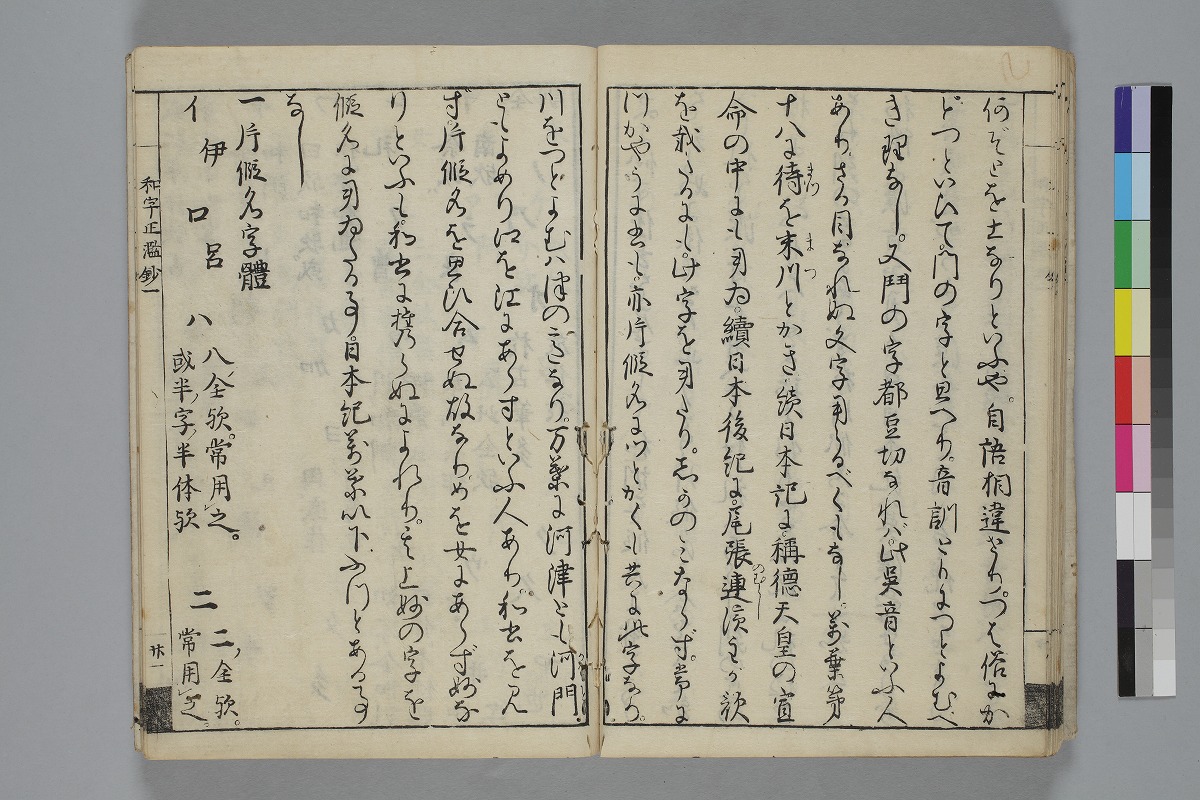 何ぞとを土なりといふや。自語相違せり。つを俗にか
どつといひて門の字と思へり。音訓ともにつとよむべ
き理なし。又鬥の字都豆切なれバ此吳音といふ人
ありさる目なれぬ文字用るべくもなし。万葉第
十八に待を末川とかき。續日本記に稱德天皇の宣
まつ
まつ
命の中にも用ゐ。續日本後紀に。尾張連濱主が歌
のむらじ
を載たるにも。此字を用たり。しかのミならず。常に
川。かやうに書も。亦片假名にツとかくも共に此字なり。
川をつとよむハ津の心なり。万葉に河津とも河門
ともよめり。江を江にあらずといふ人あり。和書を見
ず。片假名を思ひ合せぬ故なり。めを女にあらず。妙な
りといふも。和書に據らぬによれり。其上妙の字を
假名に用ゐたる事。日本紀萬葉以下ふつとある事
なし
一片假名字體
イ 伊 ロ 呂 ハ 八、全欤。常用之。
或半字、半体欤 二 二、全欤。
常用之。
和字正濫鈔一
廿一